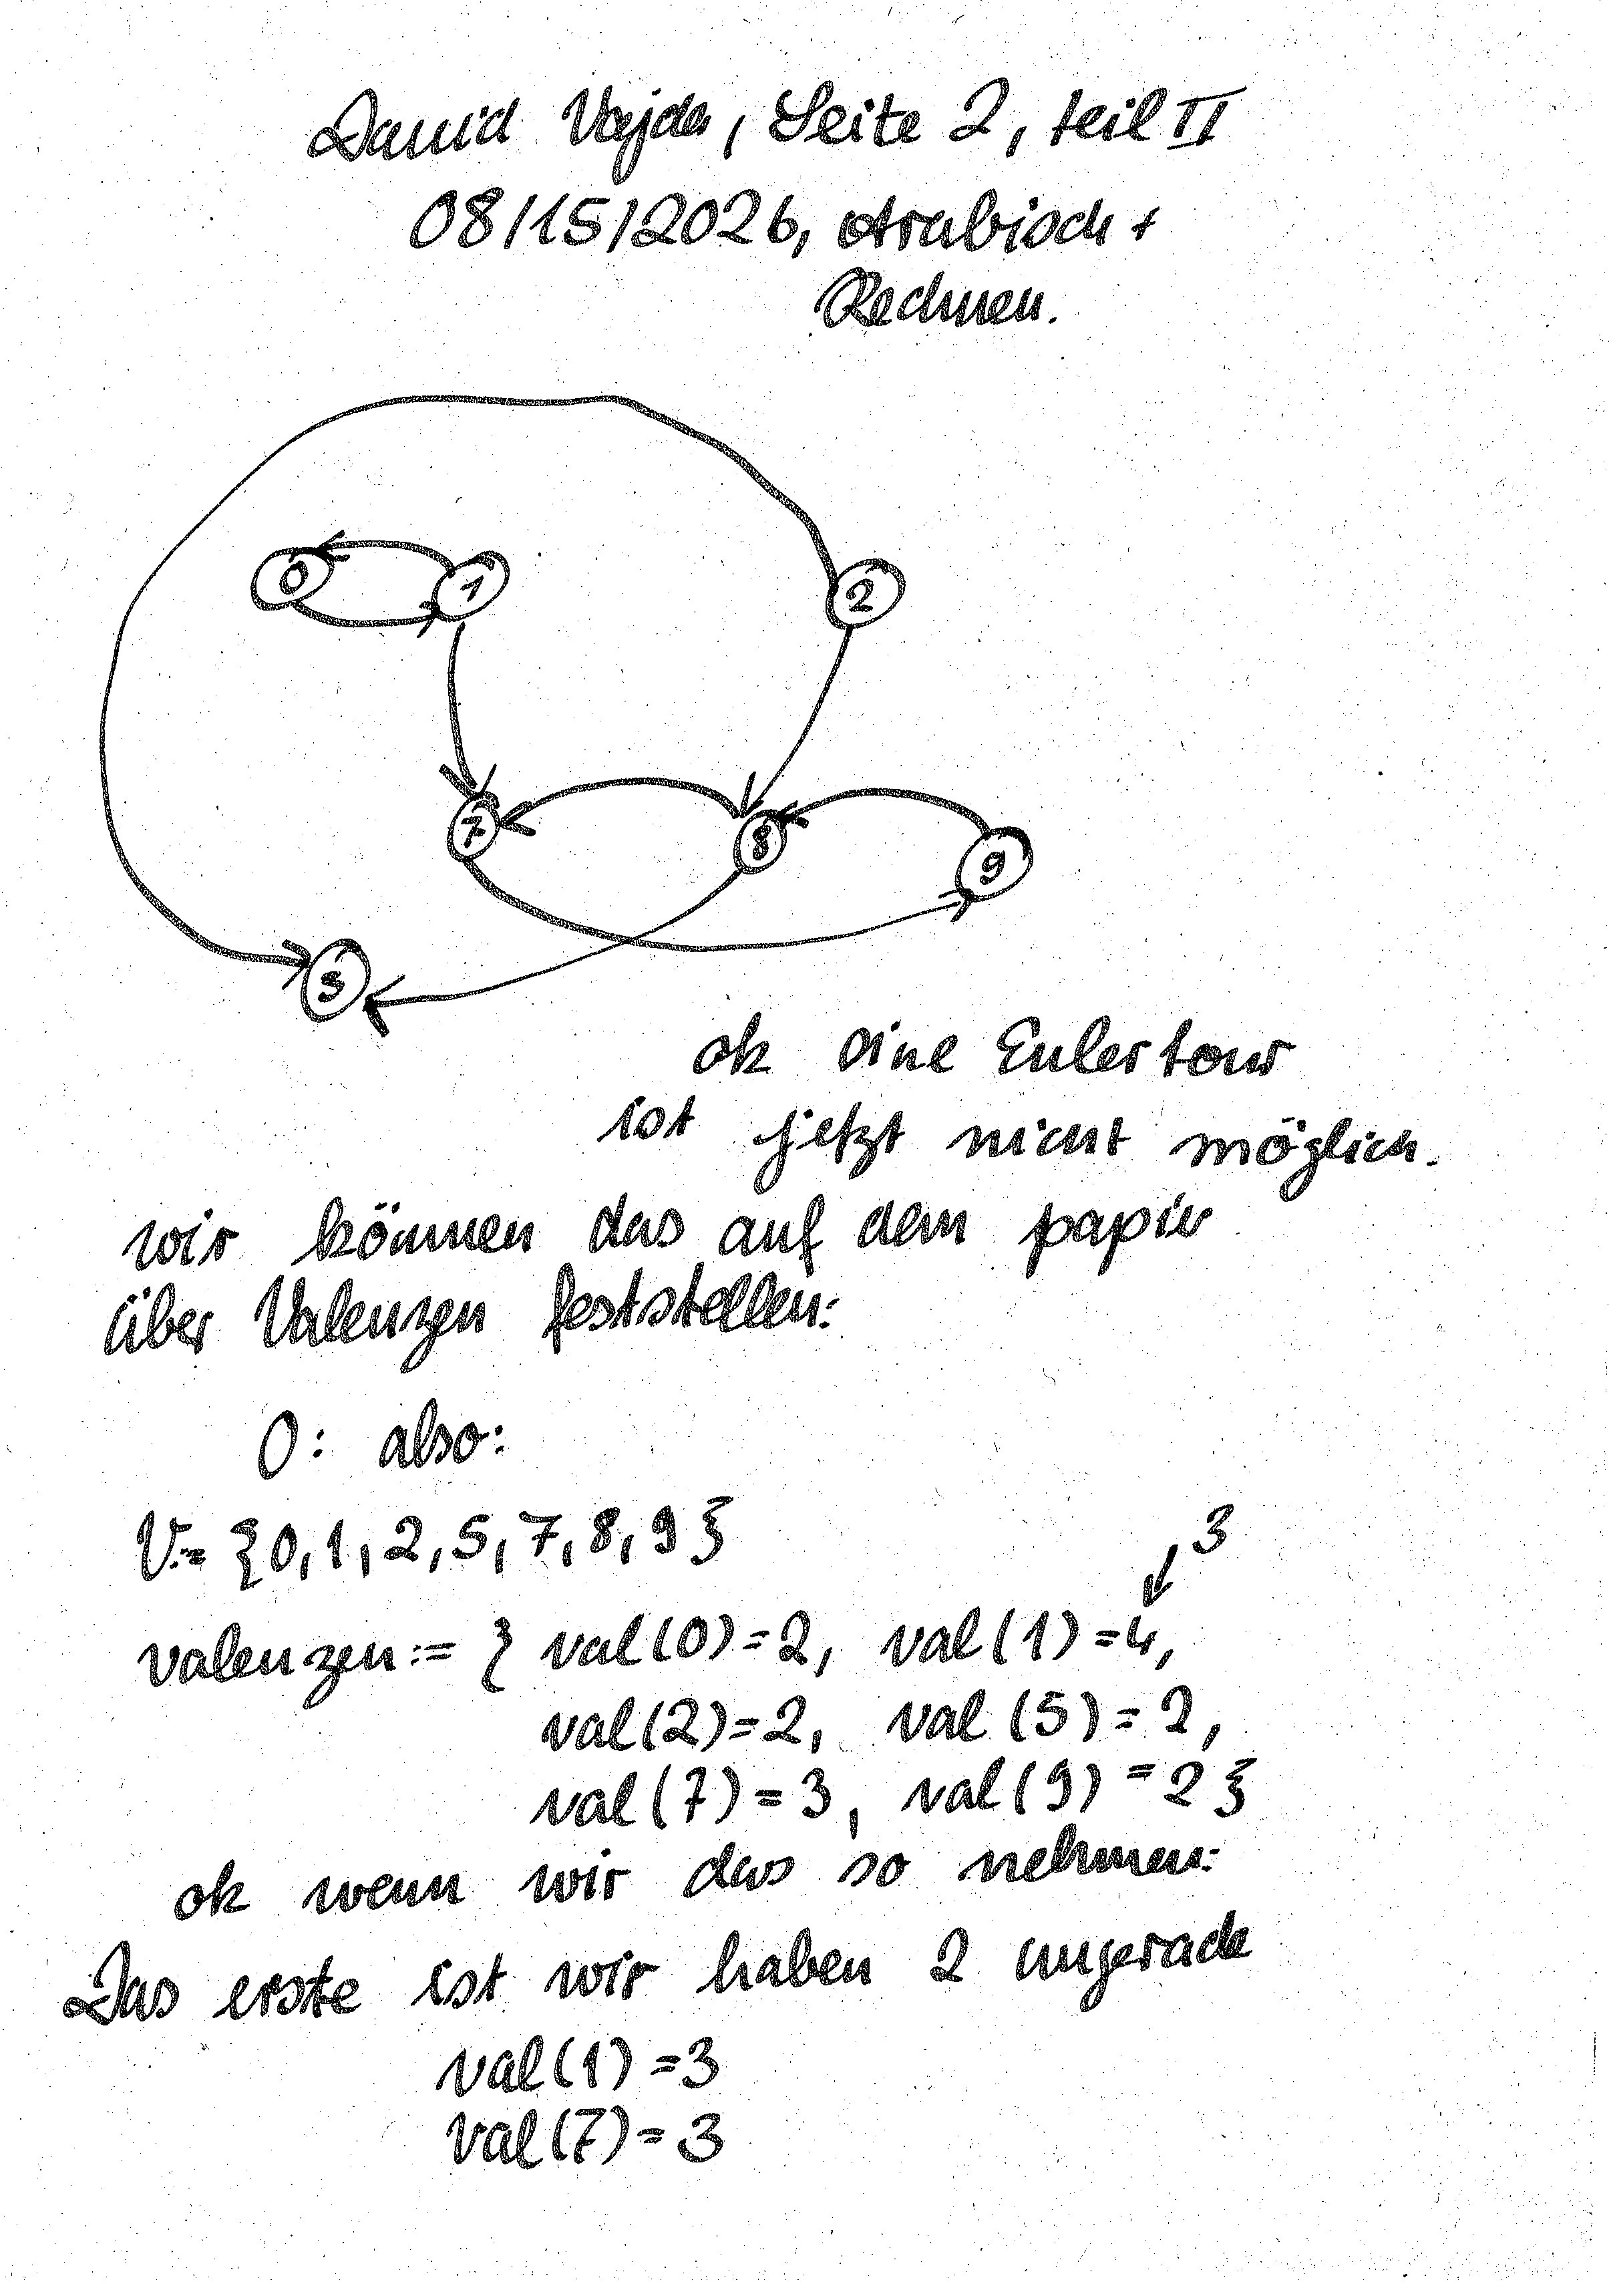 David Vajda, Seite 2, teil II
08/15/2026, Arabisch +
Rechnen.
0
1
2
7
8
9
5
ok eine Eulertour
ist jetzt nicht möglich.
wir können das auf dem papier
über Valenzen feststellen:
0: also:
V:= {0, 1, 2, 5, 7, 8, 9}
3
valenzen:= { val(0)=2, val(1)=4,
val(2)=2, val(5)=2,
val(7)=3, val(9)=2}
ok wenn wir das so nehmen:
Das erste ist wir haben 2 ungerade
val(1)=3
val(7)=3